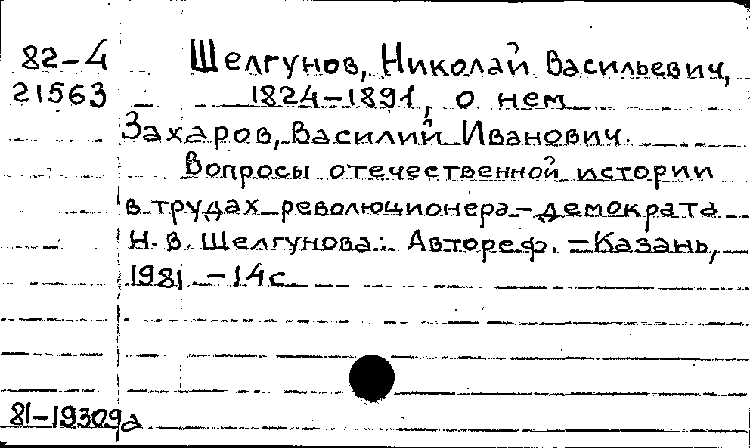 82-4 Шелгунов, Николай Васильевич,
21563 1824-1891, о нем
Захаров, Василий Иванович.
Вопросы отечественной истории
в трудах революционера-демократа
Н. В. Шелгунова: Автореф. – Казань,
1981. – 14 с.
81-19309а